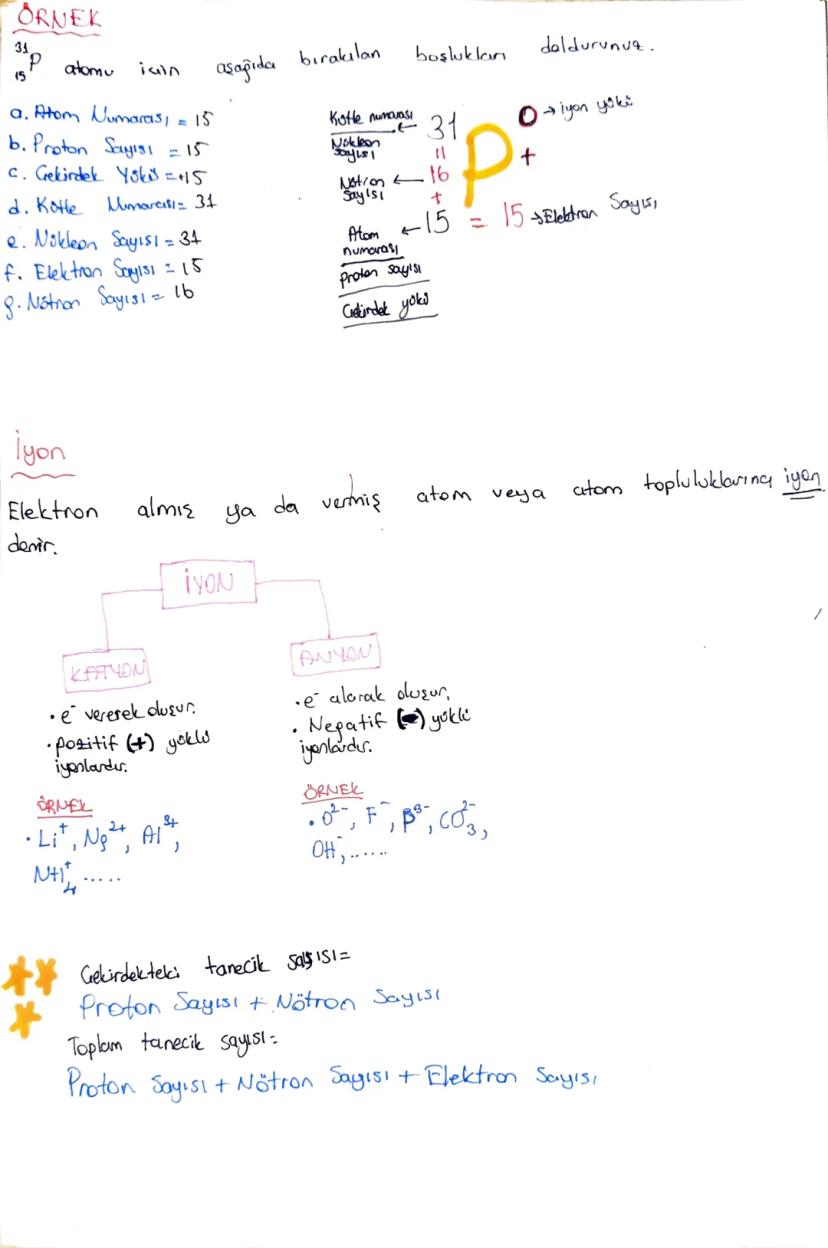 ÖRNEK
³¹₁₅P atomu için aşağıda bırakılan boşlukları doldurunuz.
a. Atom Numarası = 15
b. Proton Sayısı = 15
c. Çekirdek Yükü = +15
d. Kütle Numarası = 31
e. Nükleon Sayısı = 31
f. Elektron Sayısı = 15
g. Nötron Sayısı = 16
Kütle numarası ← 31 P 0 → iyon yükü
Nükleon Sayısı = +
Nötron Sayısı ← 16
+
Atom numarası ← 15 = 15 → Elektron Sayısı
proton sayısı
Çekirdek yükü
İyon
Elektron almış ya da vermiş atom veya atom topluluklarına iyon
denir.
İYON
KATYON
• e⁻ vererek oluşur.
• pozitif (+) yüklü
iyonlardır.
ÖRNEK
• Li⁺, Mg²⁺, Al³⁺,
NH₄⁺ .....
ANYON
• e⁻ alarak oluşur.
• Negatif (-) yüklü
iyonlardır.
ÖRNEK
• O²⁻, F⁻, P³⁻, CO₃²⁻,
OH⁻, ......
Çekirdekteki tanecik sayısı =
Proton Sayısı + Nötron Sayısı
Toplam tanecik sayısı =
Proton Sayısı + Nötron Sayısı + Elektron Sayısı